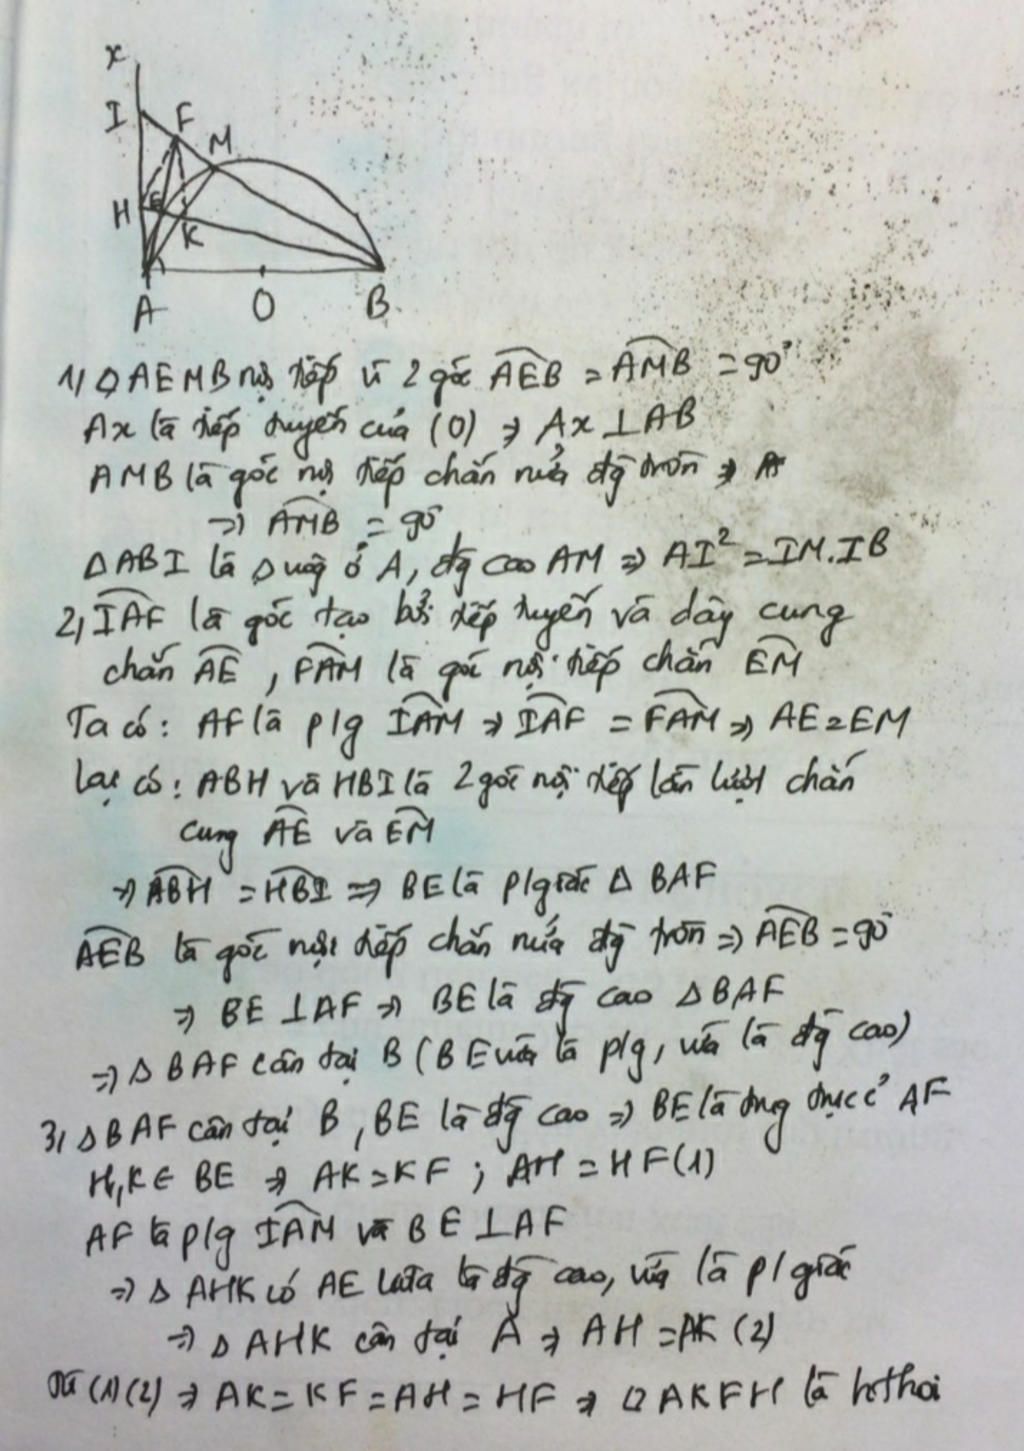 x
I F
M
H E
K
A O B
1, □ AEMB nội tiếp vì 2 góc AEB = AMB = 90°
Ax là tiếp tuyến của (O) ⇒ Ax ⊥ AB
AMB là góc nội tiếp chắn nửa đg tròn ⇒ A
⇒ AMB = 90°
Δ ABI là Δ vuôg ở A, đg cao AM ⇒ AI² = IM.IB
2, IAF là góc tạo bởi tiếp tuyến và dây cung
chắn AE, FAM là góc nội tiếp chắn EM
Ta có: AF là p/g IAM ⇒ IAF = FAM ⇒ AE = EM
Lại có: ABH và HBI là 2 góc nội tiếp lần lượt chắn
cung AE và EM
⇒ ABH = HBI ⇒ BE là p/giác Δ BAF
AEB là góc nội tiếp chắn nửa đg tròn ⇒ AEB = 90°
⇒ BE ⊥ AF ⇒ BE là đg cao Δ BAF
⇒ Δ BAF cân tại B (BE vừa là p/g, vừa là đg cao)
3, Δ BAF cân tại B, BE là đg cao ⇒ BE là trung trực c̉ AF
H, K ∈ BE ⇒ AK = KF ; AH = HF (1)
AF là p/g IAM và BE ⊥ AF
⇒ Δ AHK có AE vừa là đg cao, vừa là p/giác
⇒ Δ AHK cân tại A ⇒ AH = AK (2)
Từ (1) (2) ⇒ AK = KF = AH = HF ⇒ □ AKFH là h.thoi